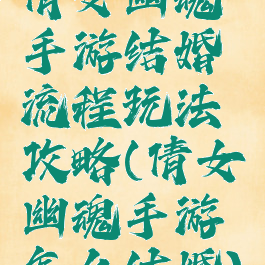 倩女幽魂
手游结婚
流程玩法
攻略(倩女
幽魂手游
怎么结婚)